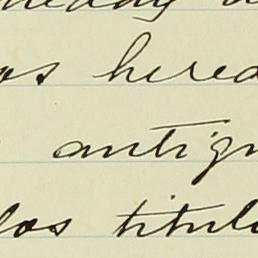 os hered
antig
los titul